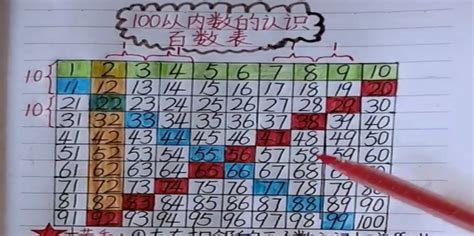 100以内数的认识
百数表
10 1 2 3 4 5 6 7 8 9 10
11 12 13 14 15 16 17 18 19 20
10 21 22 23 24 25 26 27 28 29 30
31 32 33 34 35 36 37 38 39 40
41 42 43 44 45 46 47 48 49 50
51 52 53 54 55 56 57 58 59 60
61 62 63 64 65 66 67 68 70
71 72 73 74 75 76 77 78 79 80
81 82 83 84 85 86 87 88 89 90
91 92 93 94 95 96 97 98 99 100